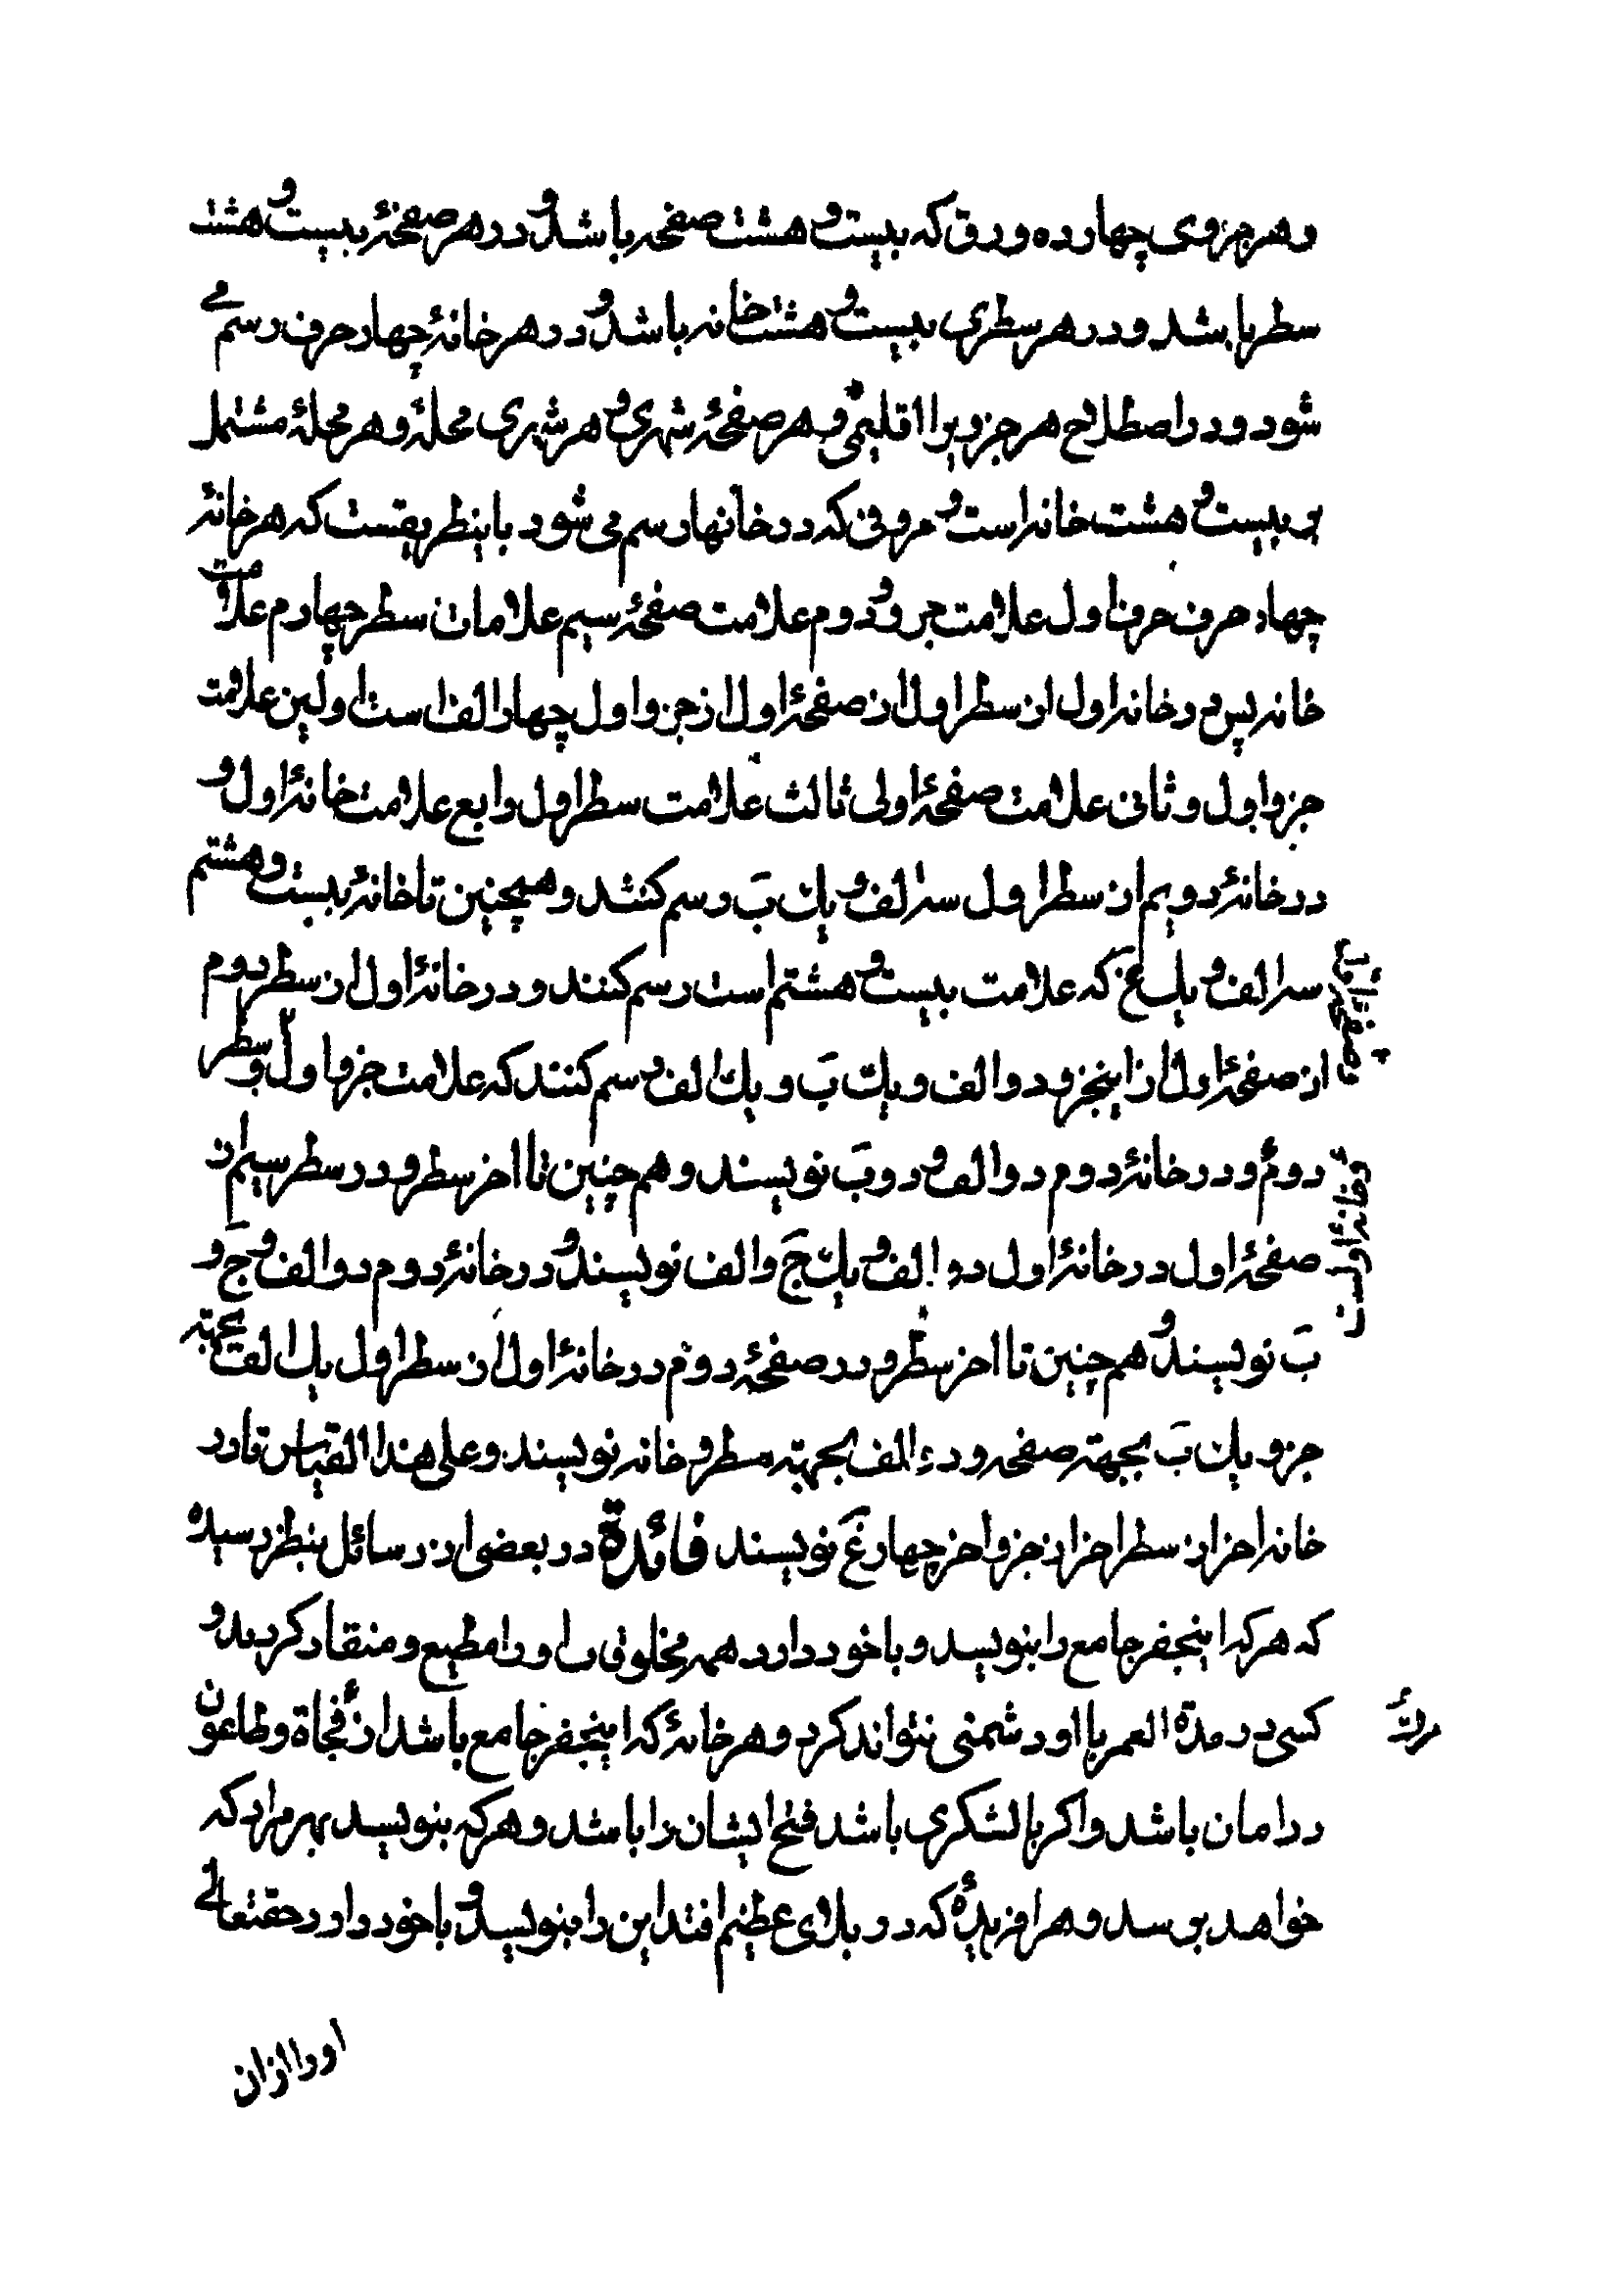 و هر جزوی چهارده ورق که بیست و هشت صفحه باشد و در هر صفحهٔ بیست و هشت
سطر باشد و در هر سطری بیست و هشت خانه باشد و در هر خانهٔ چهار حرف رسم می
شود و در اصطلاح هر جزویرا اقلیمی و هر صفحهٔ شهری و هر شهری محلهٔ و هر محلهٔ مشتمل
بر بیست و هشت خانه است و حروفی که در خانها رسم می شود باینطریقست که هر خانهٔ
چهار حرف حرف اول علامت جزو و دوم علامت صفحهٔ سیم علامات سطر چهارم علامت
خانه پس در خانه اول از سطر اول از صفحهٔ اول از جزو اول چهار الف است اولین علامت
جزو اول و ثانی علامت صفحهٔ اولی ثالث علامت سطر اول رابع علامت خانهٔ اول و
در خانهٔ دویم از سطر اول سه الف و یک بَ رسم کنند و همچنین تا خانهٔ بیست و هشتم
سه الف و یک غَ که علامت بیست و هشتم است رسم کنند و در خانهٔ اول از سطر دوم
از صفحهٔ اول از اینجزو دو الف و یک بَ و یک الف رسم کنند که علامت جزو اول و سطر
دوم و در خانهٔ دوم دو الف و دو بَ نویسند و هم چنین تا اخر سطر و در سطر سیم از
و خانهٔ اولست
صفحهٔ اول در خانهٔ اول دو الف و یک جَ و الف نویسند و در خانهٔ دوم دو الف و جَ و
بَ نویسند و هم چنین تا اخر سطر و در صفحهٔ دوم در خانهٔ اول از سطر اول یک الف بجهته
جزو و یک بَ بجهته صفحه و دو الف بجهته سطر و خانه نویسند و علی هذا القیاس تا در
خانه اخر از سطر اخر از جزو اخر چهار غَ نویسند فائدة در بعضی از رسائل بنظر رسیده
که هر که اینجفر جامع را بنویسد و با خود دارد همه مخلوقی را او را مطیع و منقاد کردند و
کسی در مدة العمر با او دشمنی نتواند کرد و هر خانهٔ که اینجفر جامع باشد از فجاة و طاعون
در امان باشد و اکر با لشکری باشد فتح ایشان را باشد و هر که بنویسد بهر مراد که
خواهد برسد و هر افریدهٔ که در بلای عظیم افتد این را بنویسد و با خود دارد حقتعالی
او را از ان